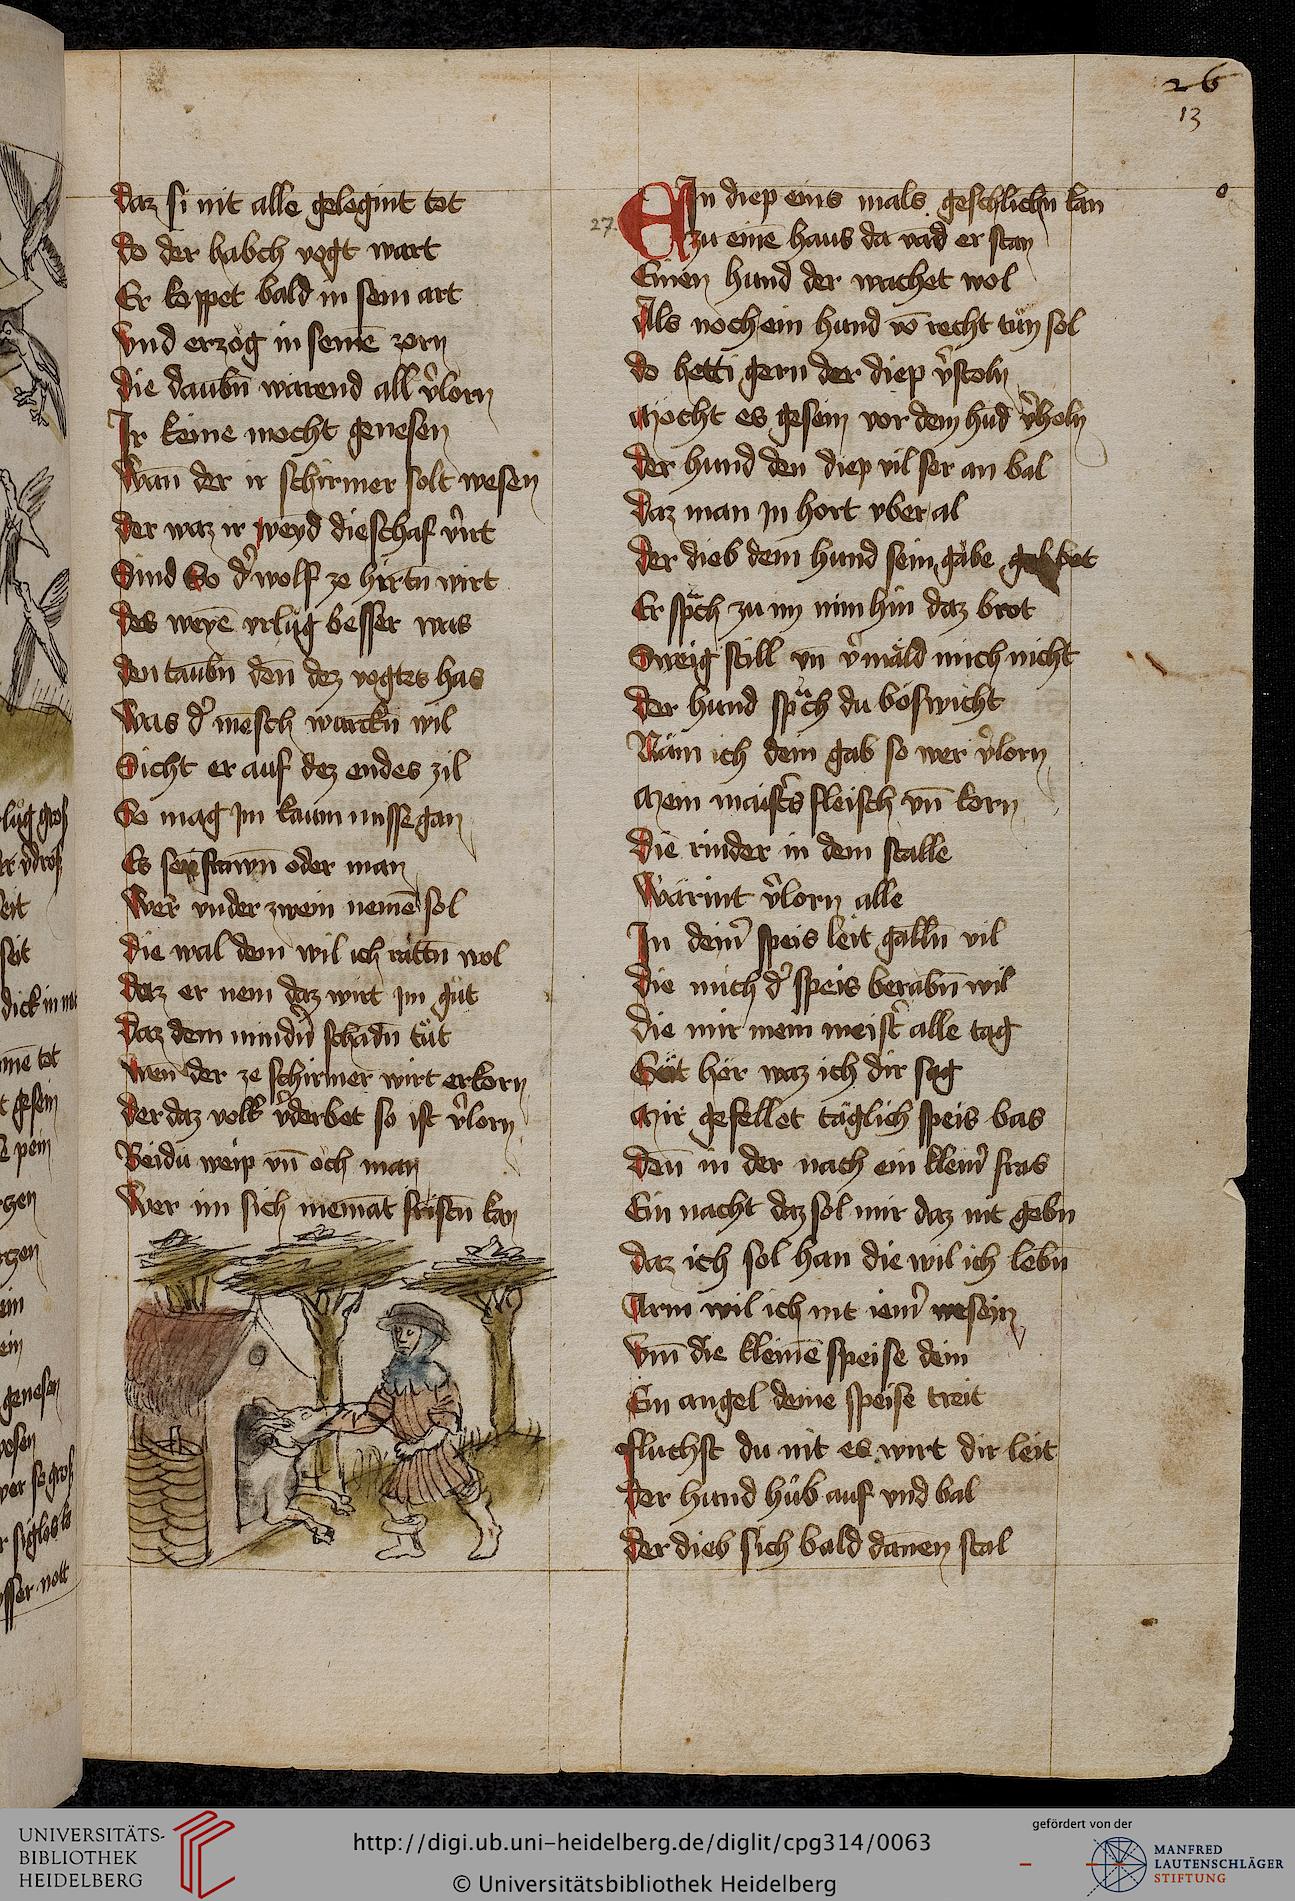 26
13
daz si nit alle gelegint tot
do der habch vogt wart
Er koppet bald in sein art
vnd erzög in seinē zorn
die daubn̄ warend all v̾lorn
Ir keine mocht genesen
Wan̄ der ir schirmer solt wesen
der waz ir weyd die schaf v̾irt
Sind So d̾ wolf ze hirtn̄ wirt
des weyē vrlüg besser was
den taubn̄ den̄ dez vogtes has
Was d̾ mēsch wurckn̄ wil
Sicht er auf dez endes zil
So mag im kaum missegan
Es sey frawn̄ oder man
Wer vnder zwein nemē sol
die wal dem wil ich rättn̄ wol
daz er nem daz wirt im güt
daz dem mindn̾ schadn̄ tüt
wen der ze schirmer wirt erkorn
der daz volk v̾derbet so ist v̾lorn
Beidu weip vn̄ och man
Wer im sich niemāt fristn̄ kan
27.
EIn diep eins mals geschlichn̄ kan
zu einē haus da vād er stan
Einen hund der wachet wol
Als noch ein hund vō recht tün sol
do hetti gern der diep v̾stoln
Möcht es gesein vor dem hūd v̾holn
der hund den diep vil ser an bal
daz man in hort vber al
der dieb dem hund sein gäbe bot
Er sp̈ch zu im nim hin daz brot
Sweig still vn̄ v̾mäld mich nicht
der hund sp̈ch du böswicht
Näm ich dein gab so wer v̾lorn
Mein maist̾s fleisch vn̄ korn
die rinder in dem stalle
Wärint v̾lorn alle
In dein̾ speis leit galln̄ vil
die mich d̾ speis berabn̄ wil
die mir mein meist̾ alle tag
Geit hör waz ich dir sag
Mir gefellet täglich speis bas
den̄ in der nach ein klein̾ fras
Ein nacht daz sol mir daz nit gebn̄
daz ich sol han die wil ich lebn̄
Arm wil ich nit iem̾ wesein
Vm̄ die kleinē speise dein
Ein angel deine speise treit
fluchst du nit es wirt dir leit
der hund hüb auf vnd bal
der dieb sich bald dan̄en stal
UNIVERSITÄTS-
BIBLIOTHEK
HEIDELBERG
http://digi.ub.uni-heidelberg.de/diglit/cpg314/0063
© Universitätsbibliothek Heidelberg
gefördert von der
MANFRED
LAUTENSCHLÄGER
STIFTUNG